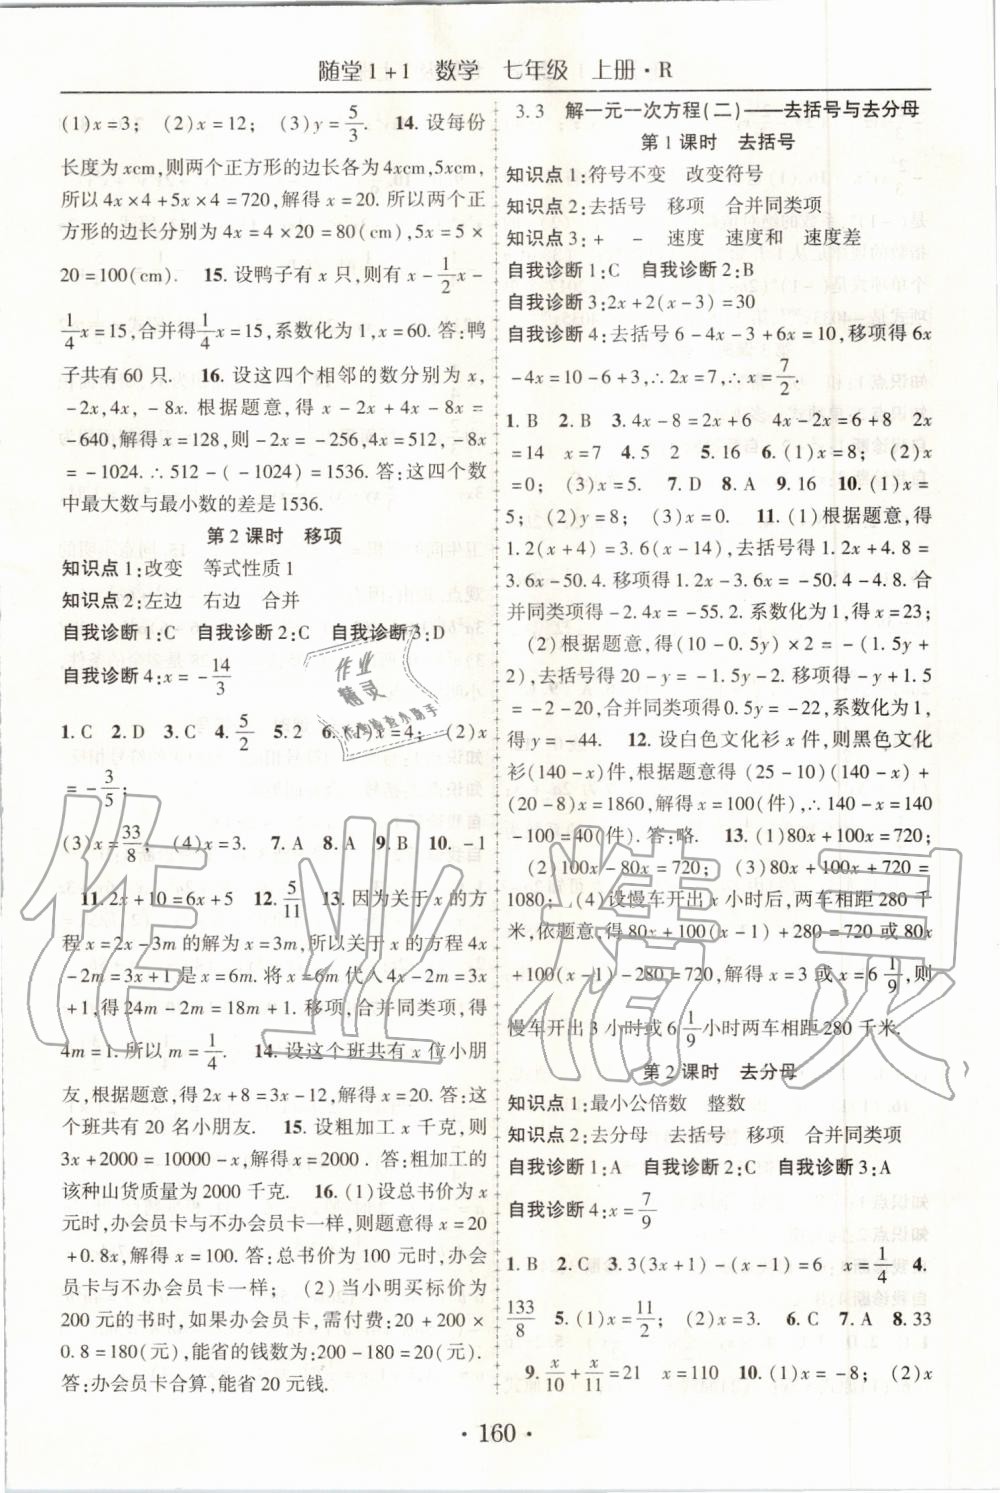 随堂1+1 数学 七年级 上册·R
(1)x=3; (2)x=12; (3)y=5/3. 14. 设每份
长度为xcm,则两个正方形的边长各为4xcm,5xcm,
所以4x×4+5x×4=720,解得x=20. 所以两个正
方形的边长分别为4x=4×20=80(cm),5x=5×
20=100(cm). 15. 设鸭子有x只,则有x-1/2x-
1/4x=15,合并得1/4x=15,系数化为1,x=60. 答:鸭
子共有60只. 16. 设这四个相邻的数分别为x,
-2x,4x,-8x. 根据题意,得x-2x+4x-8x=
-640,解得x=128,则-2x=-256,4x=512,-8x
=-1024. ∴512-(-1024)=1536. 答:这四个数
中最大数与最小数的差是1536.
第2课时 移项
知识点1:改变 等式性质1
知识点2:左边 右边 合并
自我诊断1:C 自我诊断2:C 自我诊断3:D
自我诊断4:x=-14/3
1. C 2. D 3. C 4. 5/2 5. 2 6. (1)x=4; (2)x
=-3/5;
(3)x=33/8; (4)x=3. 7. A 8. A 9. B 10. -1
11. 2x+10=6x+5 12. 5/11 13. 因为关于x的方
程x=2x-3m的解为x=3m,所以关于x的方程4x
-2m=3x+1是x=6m. 将x=6m代入4x-2m=3x
+1,得24m-2m=18m+1. 移项,合并同类项,得
4m=1. 所以m=1/4. 14. 设这个班共有x位小朋
友,根据题意,得2x+8=3x-12,解得x=20. 答:这
个班共有20名小朋友. 15. 设粗加工x千克,则
3x+2000=10000-x,解得x=2000. 答:粗加工的
该种山货质量为2000千克. 16. (1)设总书价为x
元时,办会员卡与不办会员卡一样,则题意得x=20
+0.8x,解得x=100. 答:总书价为100元时,办会
员卡与不办会员卡一样; (2)当小明买标价为
200元的书时,如果办会员卡,需付费:20+200×
0.8=180(元),能省的钱数为:200-180=20(元).
答:办会员卡合算,能省20元钱.
3.3 解一元一次方程(二)——去括号与去分母
第1课时 去括号
知识点1:符号不变 改变符号
知识点2:去括号 移项 合并同类项
知识点3:+ - 速度 速度和 速度差
自我诊断1:C 自我诊断2:B
自我诊断3:2x+2(x-3)=30
自我诊断4:去括号6-4x-3+6x=10,移项得6x
-4x=10-6+3,∴2x=7,∴x=7/2.
1. B 2. B 3. 4x-8=2x+6 4x-2x=6+8 2x
=14 x=7 4. 5 2 5. 16 6. (1)x=8; (2)x
=0; (3)x=5. 7. D 8. A 9. 16 10. (1)x=
5; (2)y=8; (3)x=0. 11. (1)根据题意,得
1.2(x+4)=3.6(x-14),去括号得1.2x+4.8=
3.6x-50.4. 移项得1.2x-3.6x=-50.4-4.8. 合
并同类项得-2.4x=-55.2. 系数化为1,得x=23;
(2)根据题意,得(10-0.5y)×2=-(1.5y+
2),去括号得20-y=-1.5y-2. 移项得-y+1.5
=-2-20,合并同类项得0.5y=-22,系数化为1,
得y=-44. 12. 设白色文化衫x件,则黑色文化
衫(140-x)件,根据题意得(25-10)(140-x)+
(20-8)x=1860,解得x=100(件),∴140-x=140
-100=40(件). 答:略. 13. (1)80x+100x=720;
(2)100x-80x=720; (3)80x+100x+720=
1080; (4)设慢车开出x小时后,两车相距280千
米,依题意,得80x+100(x-1)+280=720或80x
+100(x-1)-280=720,解得x=3或x=6 1/9,则
慢车开出3小时或6 1/9小时两车相距280千米.
第2课时 去分母
知识点1:最小公倍数 整数
知识点2:去分母 去括号 移项 合并同类项
自我诊断1:A 自我诊断2:C 自我诊断3:A
自我诊断4:x=7/9
1. B 2. C 3. 3(3x+1)-(x-1)=6 x=1/4 4.
133/8 5. (1)x=11/2; (2)x=3. 6. C 7. A 8. 33
9. x/10+x/11=21 x=110 10. (1)x=-8; (2)x
·160·
作业精灵